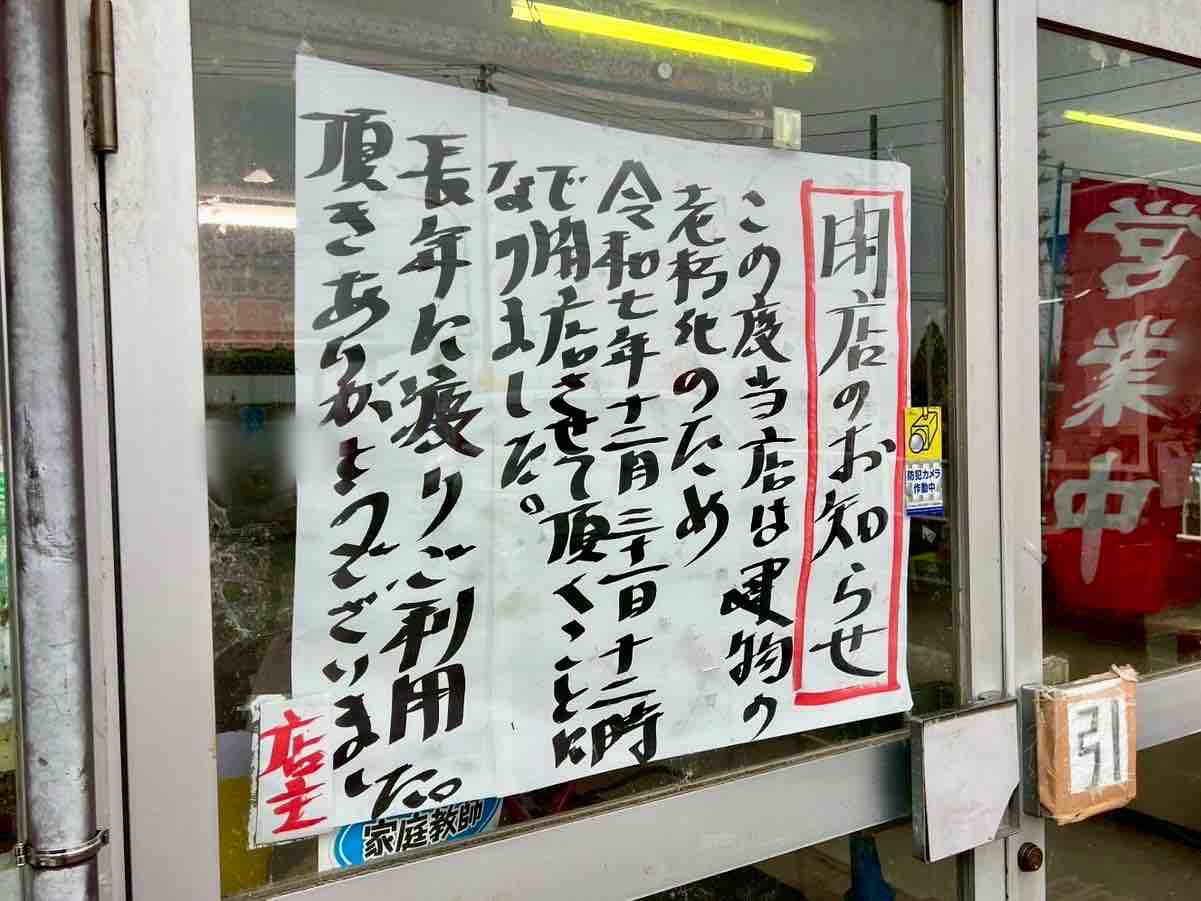 閉店のお知らせ
この度当店は建物の
老朽化のため
令和七年十二月三十一日十二時
で閉店させて頂くことに
なりました。
長年に渡りご利用
頂きありがとうございました。
店主
家庭教師
防犯カメラ
作動中
営業中
引